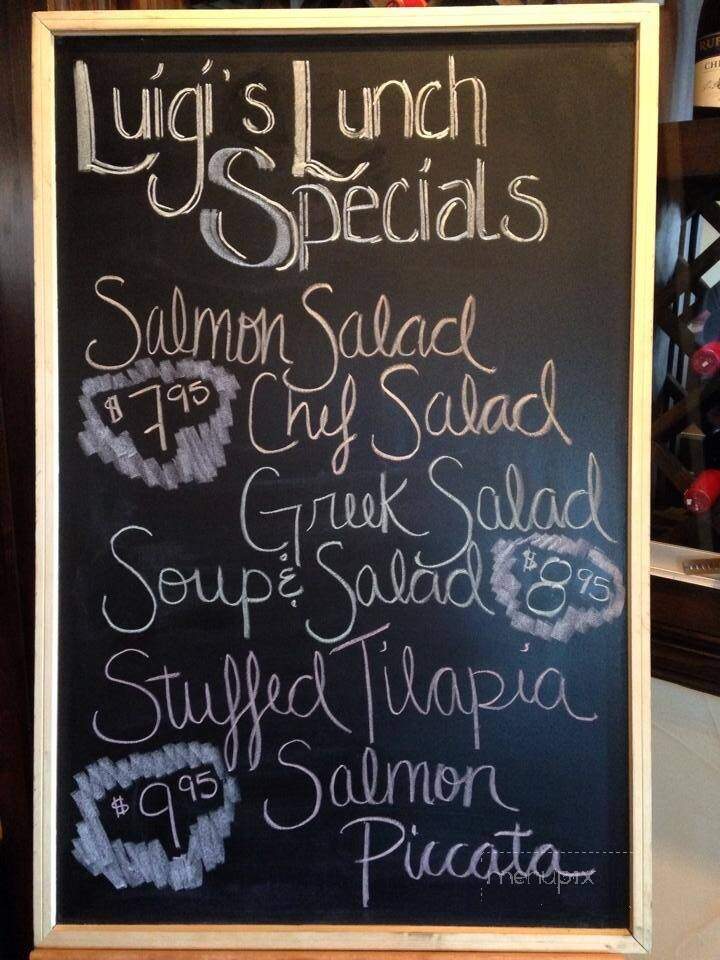 Luigi's Lunch
Specials
Salmon Salad
$7.95 Chef Salad
Greek Salad
Soup & Salad $8.95
Stuffed Tilapia
$9.95 Salmon
Piccata
menupix
RUF
CHI